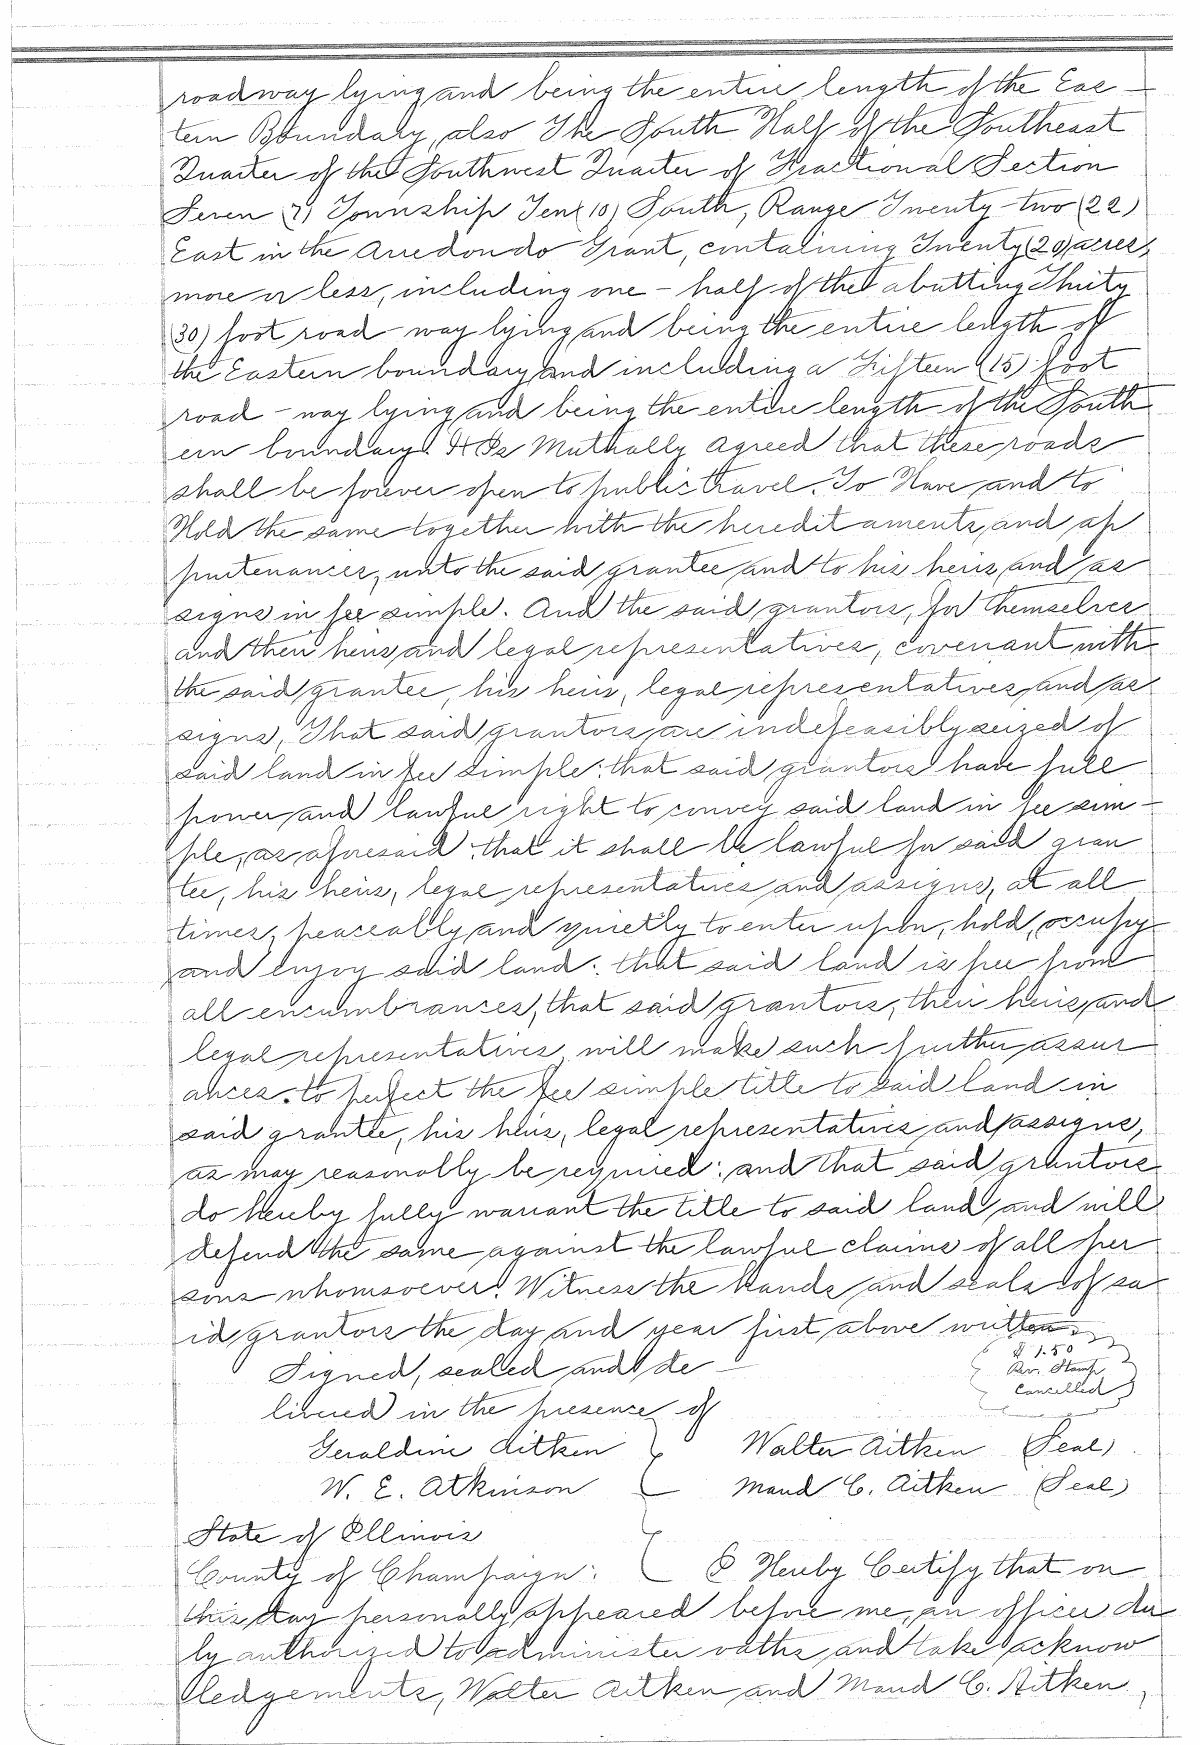 roadway lying and being the entire length of the Eas-
tern Boundary, also The South Half of the Southeast
Quarter of the Southwest Quarter of Fractional Section
Seven (7) Township Ten (10) South, Range Twenty-two (22)
East in the Arredondo Grant, containing Twenty (20) acres,
more or less, including one-half of the abutting Thirty
(30) foot road-way lying and being the entire length of
the Eastern boundary and including a Fifteen (15) foot
road-way lying and being the entire length of the South
ern boundary. It Is Mutually Agreed that these roads
shall be forever open to public travel. To Have and to
Hold the same together with the hereditaments, and ap
purtenances, unto the said grantee and to his heirs, and as
signs in fee simple. And the said grantors, for themselves
and their heirs, and legal representatives, covenant with
the said grantee, his heirs, legal representatives, and as
signs, That said grantors, are indefeasibly seized of
said land in fee simple: that said grantors have full
power and lawful right to convey said land in fee sim-
ple, as aforesaid: that it shall be lawful for said gran
tee, his heirs, legal representatives and assigns, at all
times, peaceably and quietly to enter upon, hold, occupy
and enjoy said land: that said land is free from
all encumbrances, that said grantors, their heirs, and
legal representatives, will make such further assur
ances. to perfect the fee simple title to said land in
said grantee, his heirs, legal representatives and assigns,
as may reasonably be required: and that said grantors
do hereby fully warrant the title to said land, and will
defend the same against the lawful claims of all per
sons whomsoever. Witness the hands and seals of sa
id grantors the day and year first above written.
$1.50
Signed, sealed and de-
Rev. Stamp
Cancelled
livered in the presence of
Geraldine Aitken Walter Aitken (Seal)
W. E. Atkinson Maud C. Aitken (Seal)
State of Illinois
County of Champaign: I Hereby Certify that on
this day personally appeared before me, an officer du
ly authorized to administer oaths, and take acknow
ledgements, Walter Aitken and Maud C. Aitken,